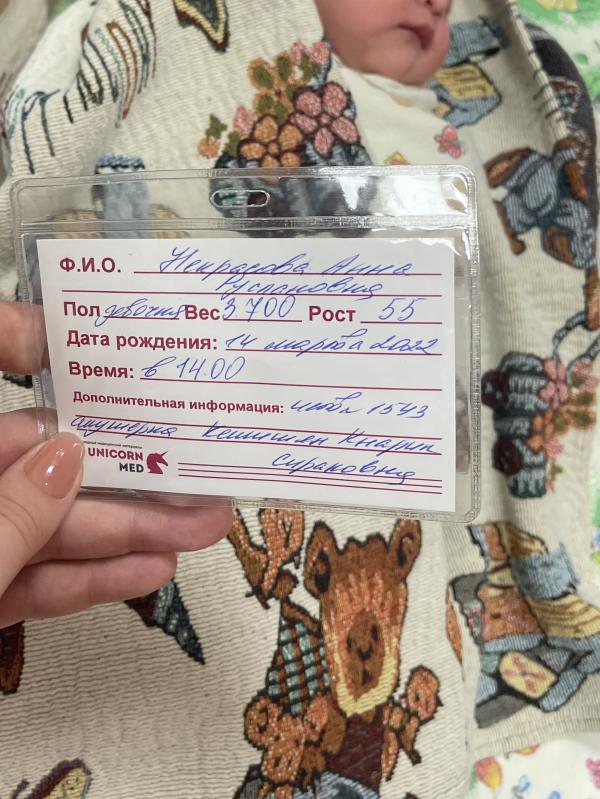 Ф.И.О. Некрасова Анна
Руслановна
Пол девочка Вес 3700 Рост 55
Дата рождения: 14 марта 2022
Время: в 14.00
Дополнительная информация: 1543
акушерка Кешишян Кнарик
UNICORN
MED